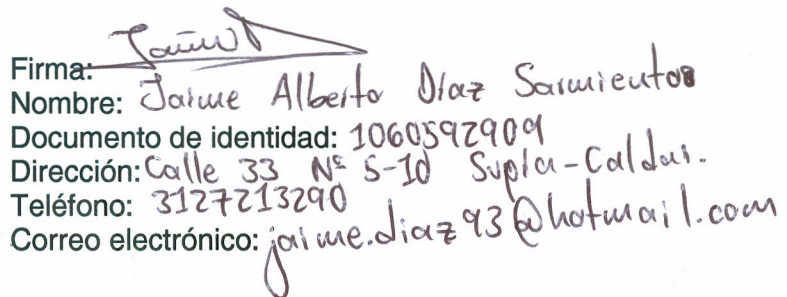 Firma: Jaime D
Nombre: Jaime Alberto Díaz Sarmientos
Documento de identidad: 1060592909
Dirección: Calle 33 Nº 5-10 Supía-Caldas.
Teléfono: 3127213290
Correo electrónico: jaime.diaz93@hotmail.com